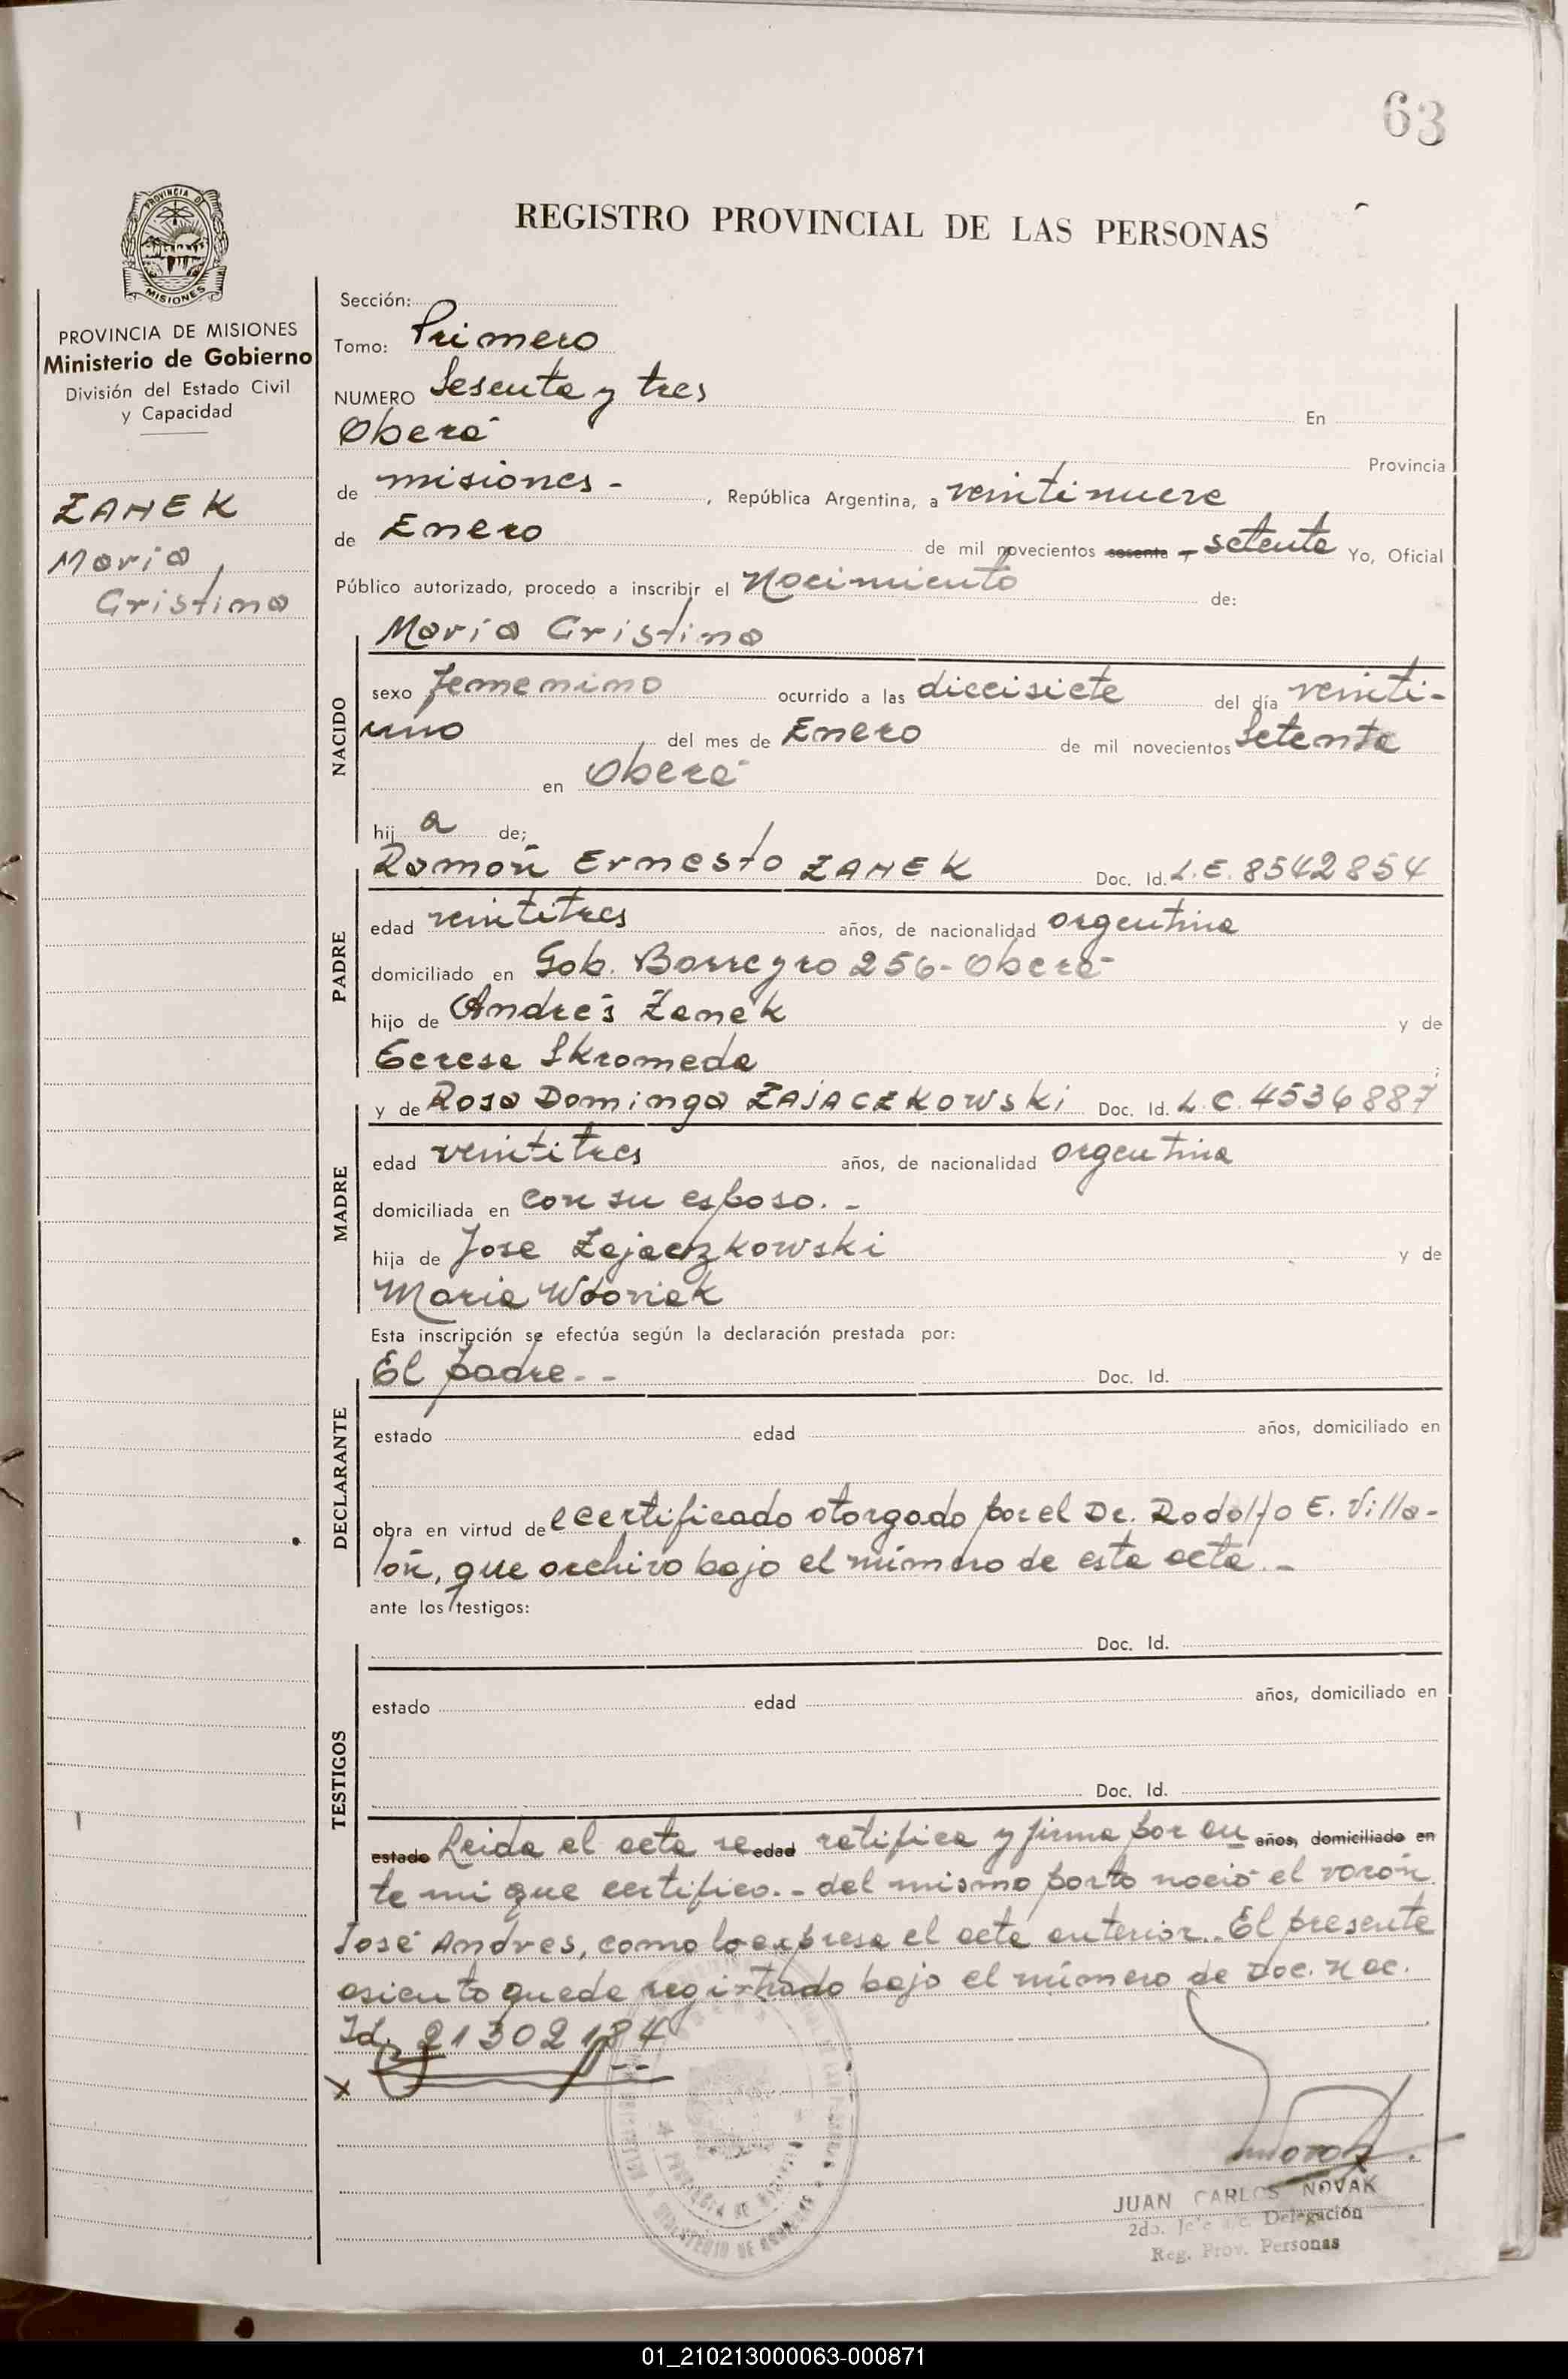 63
PROVINCIA DE
MISIONES
REGISTRO PROVINCIAL DE LAS PERSONAS
PROVINCIA DE MISIONES
Ministerio de Gobierno
División del Estado Civil
y Capacidad
ZANEK
Maria
Cristina
Sección:
Tomo: Primero
NUMERO Sesenta y tres En
Oberá Provincia
de misiones - , República Argentina, a veintinueve
de Enero de mil novecientos sesenta - setenta Yo, Oficial
Público autorizado, procedo a inscribir el Nacimiento de:
Maria Cristina
NACIDO
sexo femenino ocurrido a las diecisiete del día veinti-
uno del mes de Enero de mil novecientos Setenta
en Oberá
hij a de;
PADRE
Ramón Ernesto ZANEK Doc. Id. L.E. 8542854
edad veintitres años, de nacionalidad argentina
domiciliado en Gob. Barreyro 256 - Oberá
hijo de Andrés Zanek y de
Teresa Skromeda ;
MADRE
y de Rosa Dominga ZAJACZKOWSKI Doc. Id. L.C. 4536887
edad veintitres años, de nacionalidad argentina
domiciliada en con su esposo. -
hija de Jose Zajaczkowski y de
Maria
Esta inscripción se efectúa según la declaración prestada por:
DECLARANTE
El padre. - - Doc. Id.
estado edad años, domiciliado en
obra en virtud del certificado otorgado por el Dr. Rodolfo E. Villa-
lón, que archivo bajo el número de esta acta. -
ante los testigos:
TESTIGOS
Doc. Id.
estado edad años, domiciliado en
Doc. Id.
estado Leida el acta se edad ratifica y firma por an años, domiciliado en
te mi que certifico. - del mismo parto nació el varón
José Andres, como lo expresa el acta anterior. - El presente
asiento queda registrado bajo el número de Doc. Nac.
Id. 21302184
x
JUAN CARLOS NOVAK
2do. Jefe a/c. Delegación
Reg. Prov. Personas
01_210213000063-000871